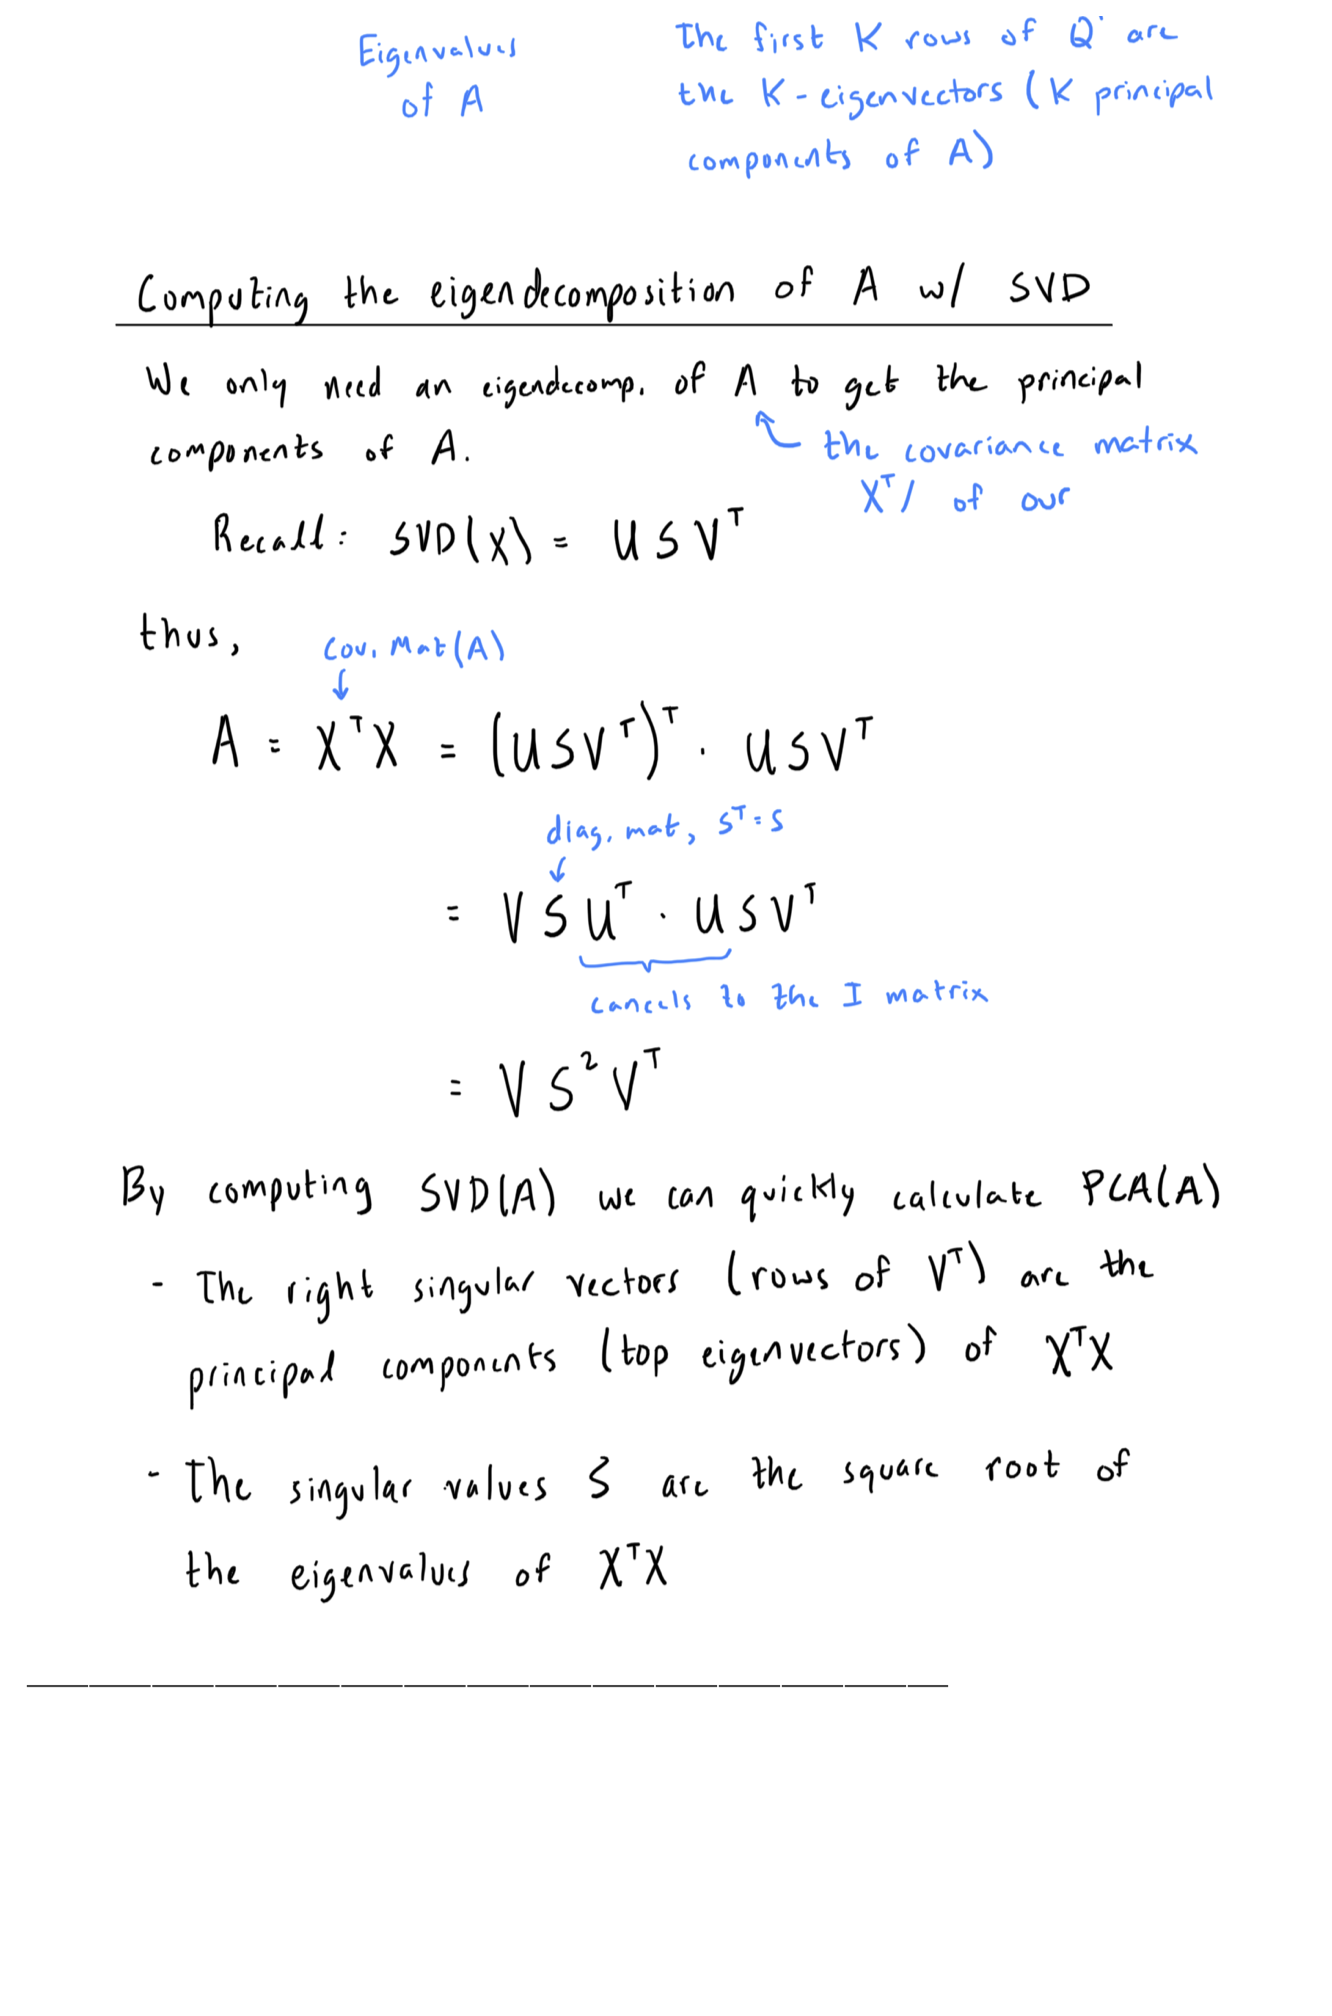 Eigenvalues
of A
The first K rows of Q are
the K-eigenvectors (K principal
components of A)
Computing the eigendecomposition of A w/ SVD
We only need an eigendecomp. of A to get the principal
components of A.
the covariance matrix
XᵀX of our
Recall: SVD(X) = U S Vᵀ
thus,
Cov. Mat(A)
A = XᵀX = (USVᵀ)ᵀ · USVᵀ
diag. mat, Sᵀ=S
= V S Uᵀ · U S Vᵀ
cancels to the I matrix
= V S² Vᵀ
By computing SVD(A) we can quickly calculate PCA(A)
- The right singular vectors (rows of Vᵀ) are the
principal components (top eigenvectors) of XᵀX
- The singular values S are the square root of
the eigenvalues of XᵀX